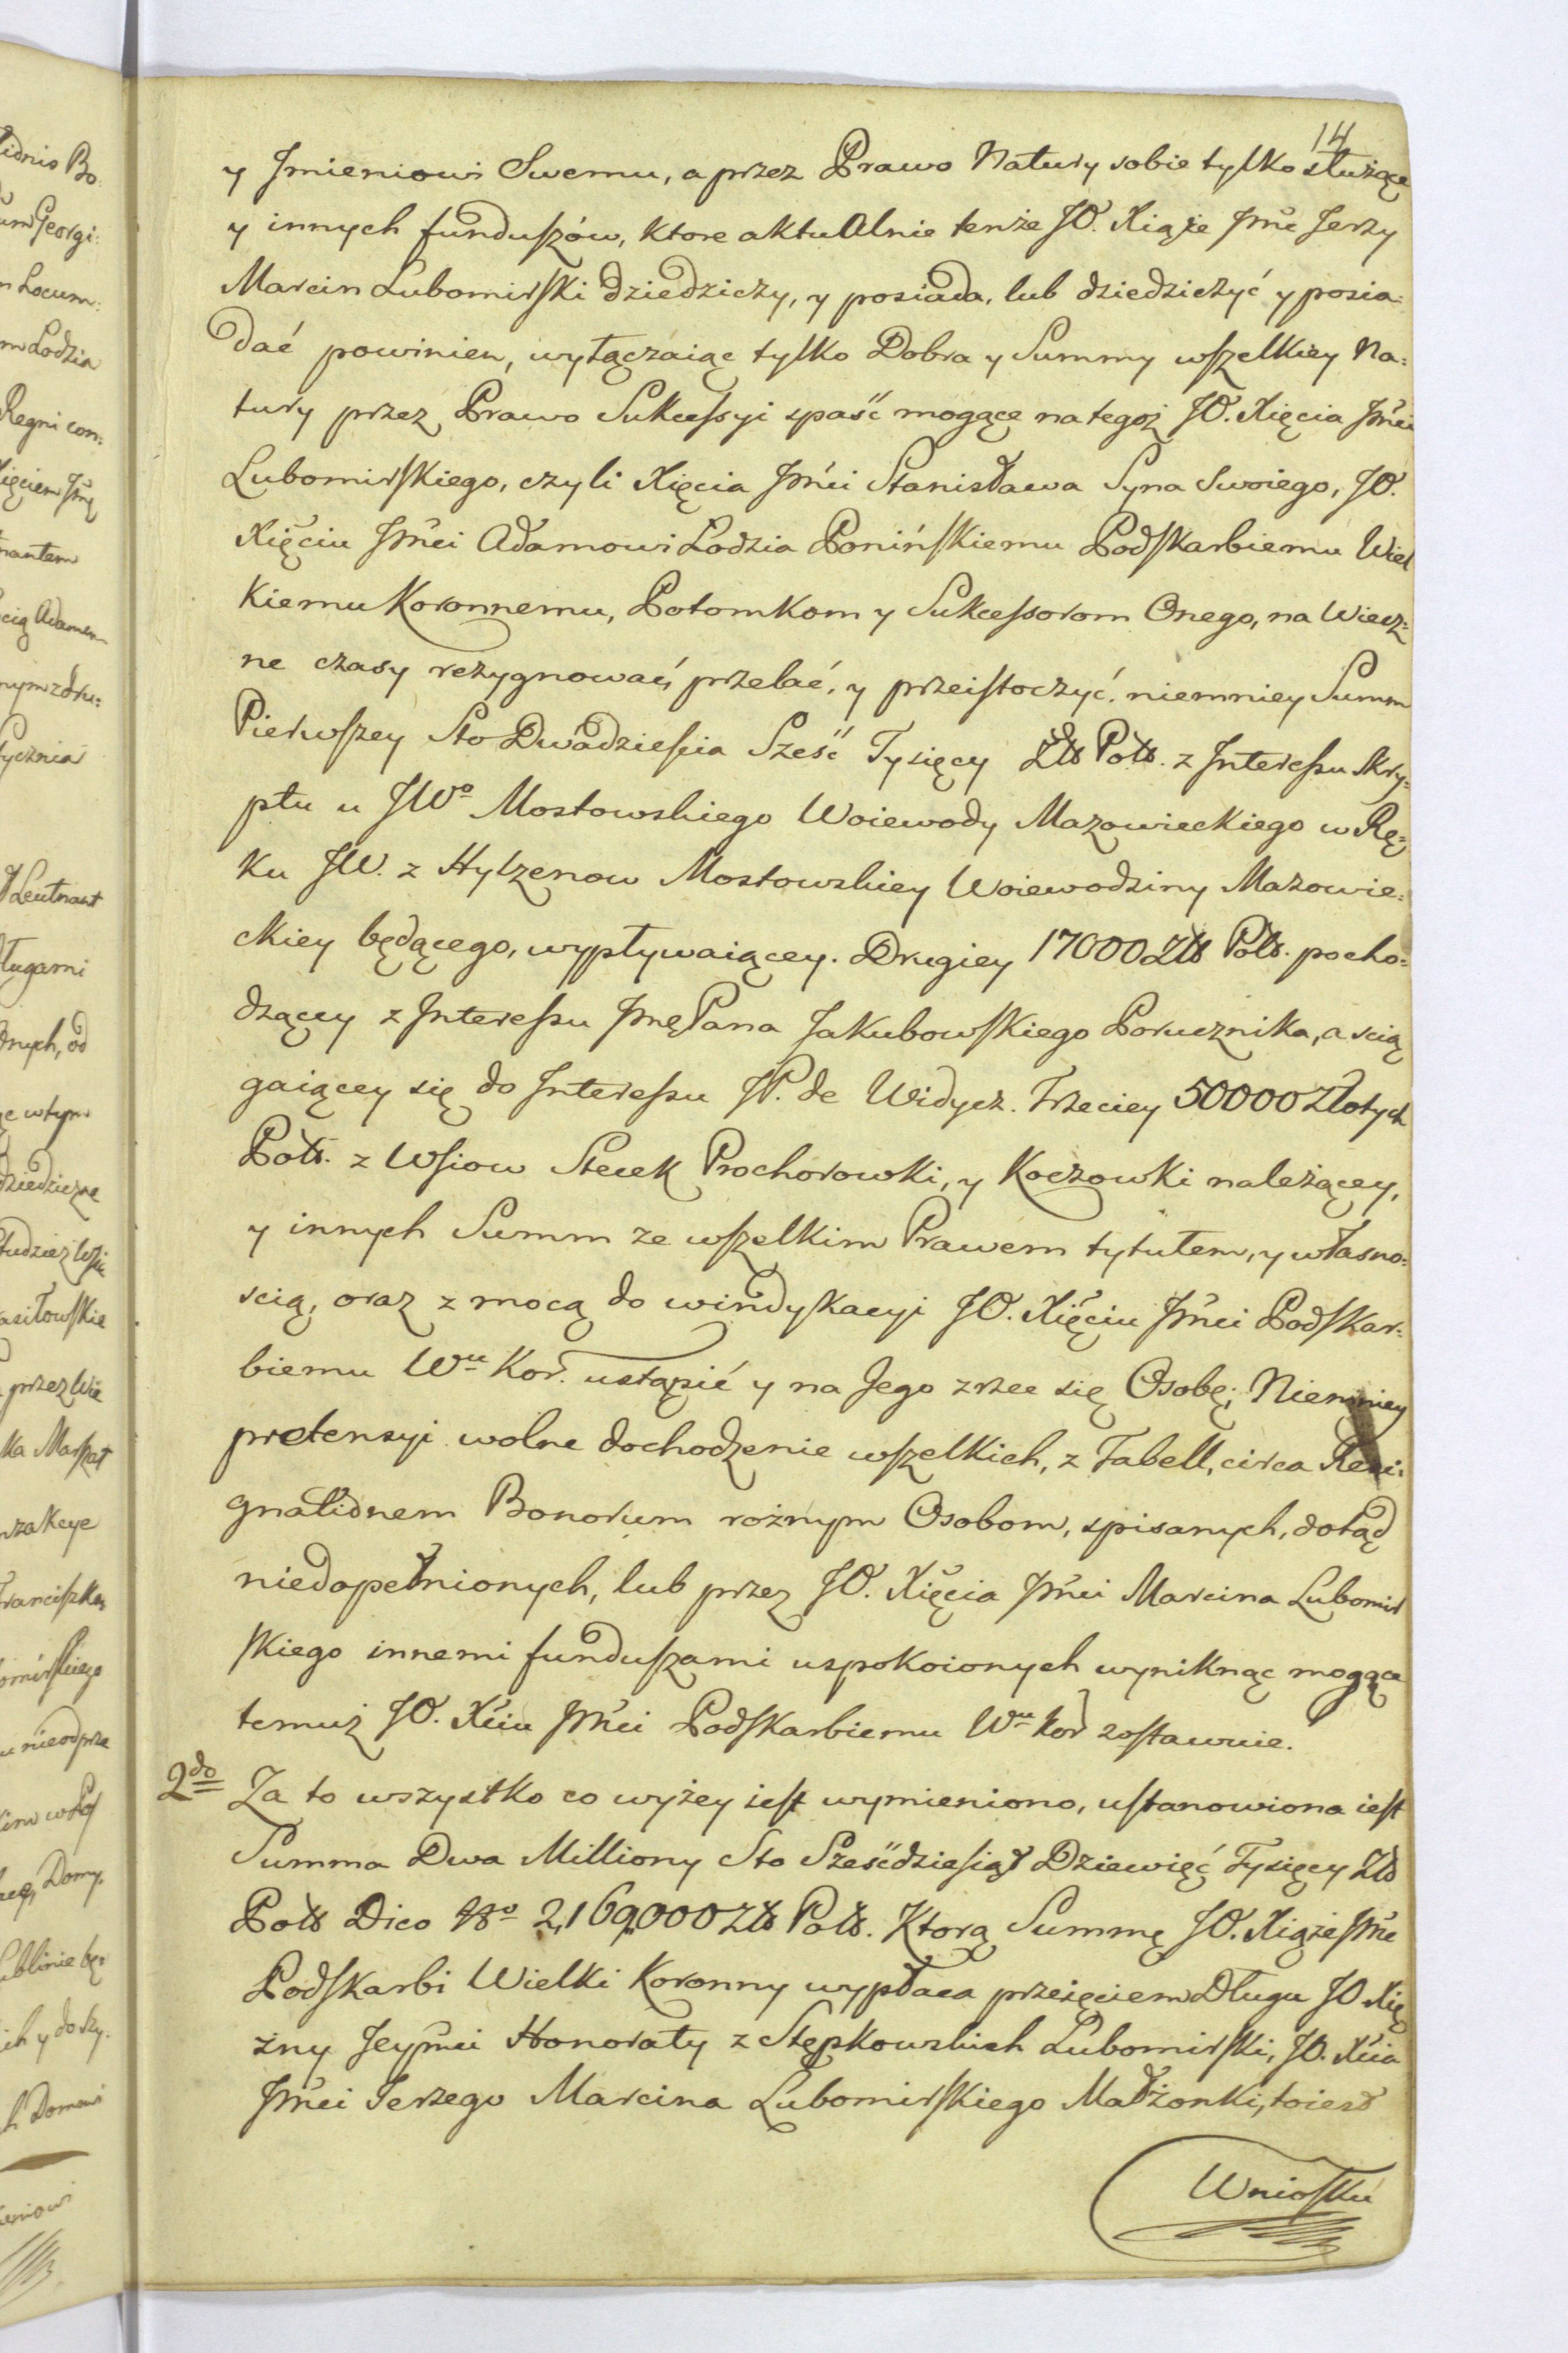 14
y Jmieniowi Swemu, a przez Prawo Natury sobie tylko służące
y innych funduszów, ktore aktualnie tenże JO. Xiąże Jmć Jerzy
Marcin Lubomirski dziedziczy, y posiada, lub dziedziczyć y posia=
dać powinien, wyłączaiąc tylko Dobra y Summy wszelkiey Na=
tury przez Prawo Sukcessyi spaść mogącę na tegoż JO. Xięcia Jmći
Lubomirskiego, czyli Xięcia Jmći Stanisława Syna Swoiego, JO.
Xięciu Jmći Adamowi Lodzia Ponińskiemu Podskarbiemu Wiel
kiemu Koronnemu, Potomkom y Sukcessorom Onego, na Wiecz=
ne czasy rezygnować, przelać, y przeistoczyć. niemniey Summ
Pierwszey Sto Dwadziescia Sześć Tysięcy Złł Polł. z Interessu Skry=
ptu u JWo Mostowskiego Woiewody Mazowieckiego w Rę=
ku JW. z Hylzenow Mostowskiey Woiewodziny Mazowie=
ckiey będącego, wypływaiącey. Drugiey 17000 Złł Polł. pocho=
dzący z Interessu Jmę Pana Jakubowskiego Porucznika, a scią
gaiącey się do Interessu JP. de Widycz. Trzeciey 50000 Złotych
Polł. z Wsiow Steek Prochorowki, y Koczowki należącey,
y innych Summ ze wszelkim Prawem tytułem, y własno=
scią, oraz z mocą do windykacyi JO. Xięciu Jmći Podskar=
biemu Wu Kor. ustąpić y na Jego zrzec się Osobę; Niemniey
pretensyi wolne dochodzenie wszelkich, z Tabell, circa Resi=
gnationem Bonorum rożnym Osobom, spisanych, dotąd
niedopełnionych, lub przez JO. Xięcia Jmći Marcina Lubomir
skiego innemi funduszami uspokoionych wyniknąc mogące
temuż JO. Xciu Jmći Podskarbiemu Wu Kor zostawuie.
2do Za to wszystko co wyżey iest wymieniono, ustanowiona iest
Summa Dwa Milliony Sto Sześćdziesiąt Dziewięć Tysięcy Złł
Polł Dico No 2,169,000 Złł Polł. Ktorą Summę JO. Xiąże Jmć
Podskarbi Wielki Koronny wypłaca przeięciem Długu JO Xię
żny Jeymći Honoraty z Stępkowskich Lubomirski, JO. Xcia
Jmći Jerzego Marcina Lubomirskiego Małżonki, toiest
Wniosku